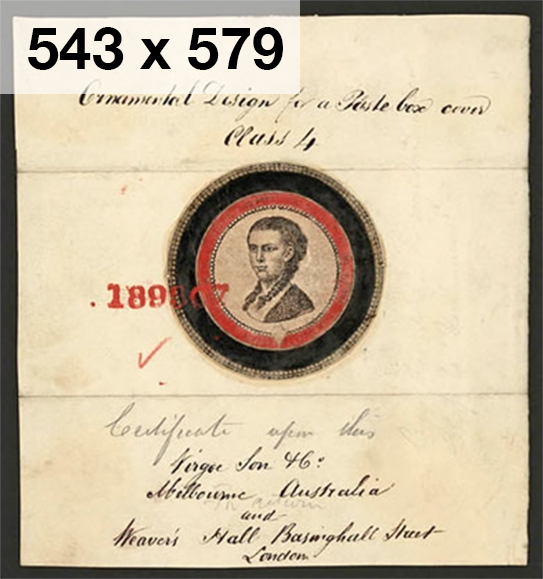 543 x 579
Ornamental Design for a Paste box cover
Class 4
. 189
Certificate upon this
Virgoe Son & Co
Melbourne Australia
and
Weavers Hall Basinghall Street
London